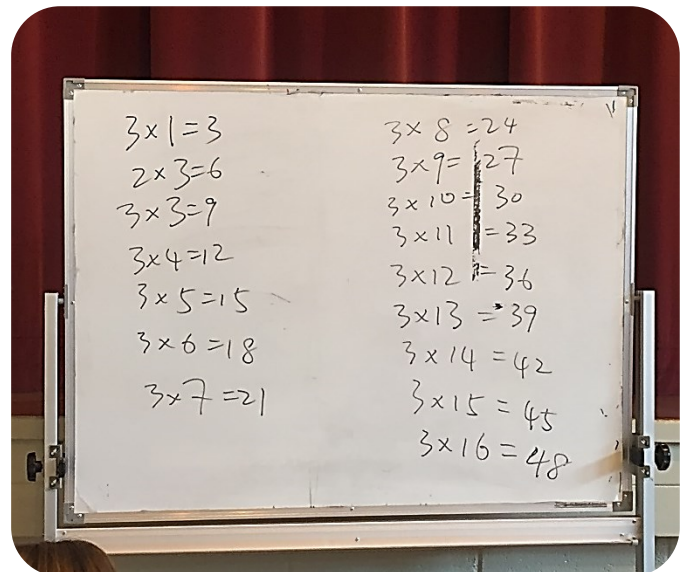 3×1=3
2×3=6
3×3=9
3×4=12
3×5=15
3×6=18
3×7=21
3×8=24
3×9=27
3×10=30
3×11=33
3×12=36
3×13=39
3×14=42
3×15=45
3×16=48